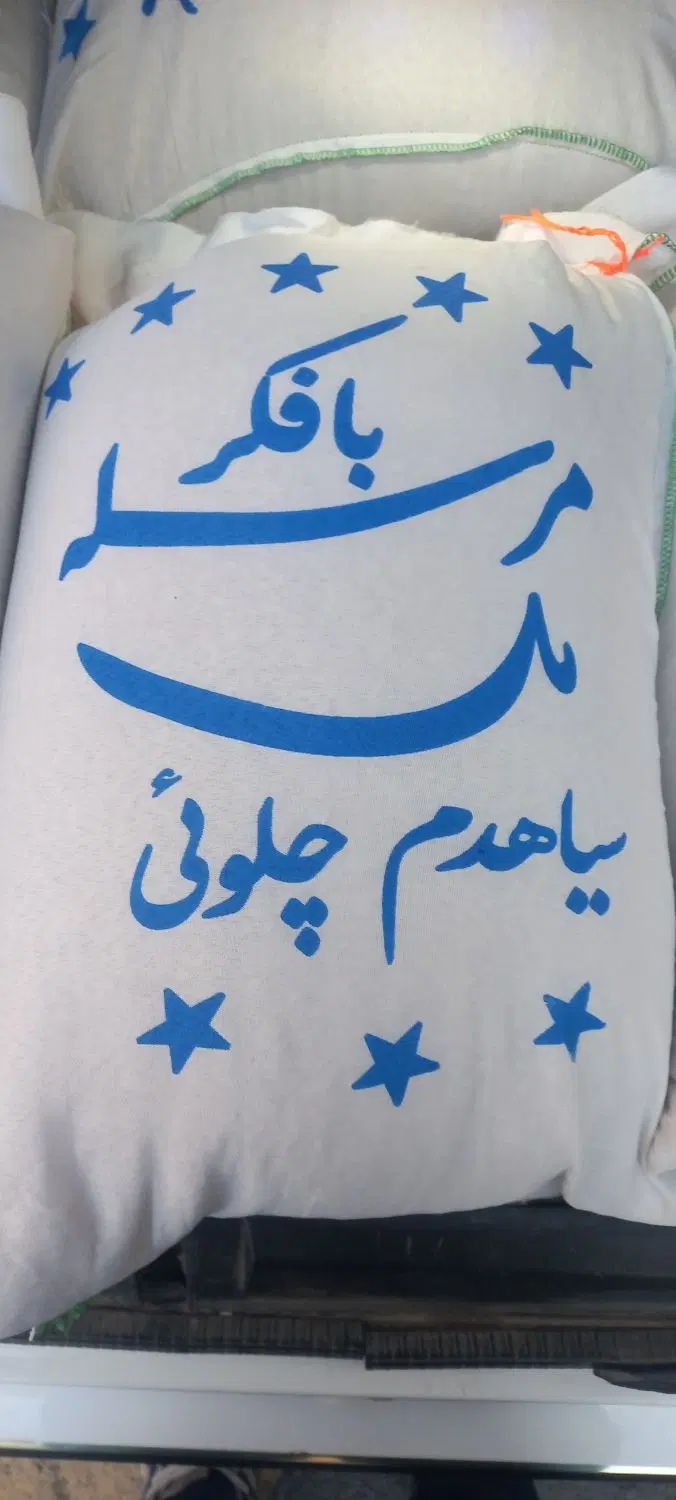 بافکر
مرسله
مل
سیاهدم چلوئی